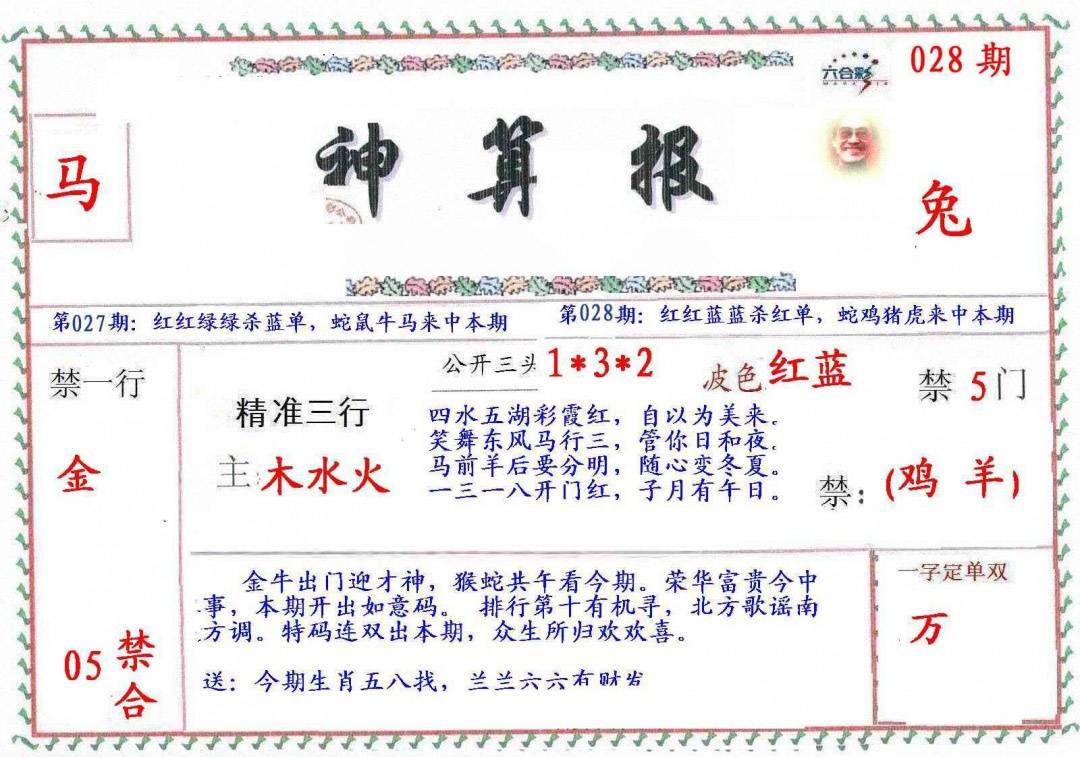 028 期
六合彩
神算报
马
兔
第027期：红红绿绿杀蓝单，蛇鼠牛马来中本期
第028期：红红蓝蓝杀红单，蛇鸡猪虎来中本期
禁一行
金
05 禁合
精准三行
主：木水火
公开三头 1*3*2
波色 红蓝
四水五湖彩霞红，自以为美来。
笑舞东风马行三，管你日和夜。
马前羊后要分明，随心变冬夏。
一三一八开门红，子月有午日。
禁 5 门
禁：（鸡 羊）
金牛出门迎才神，猴蛇共午看今期。荣华富贵今中
事，本期开出如意码。 排行第十有机寻，北方歌谣南
方调。特码连双出本期，众生所归欢欢喜。
送：今期生肖五八找，兰兰六六有财发
一字定单双
万